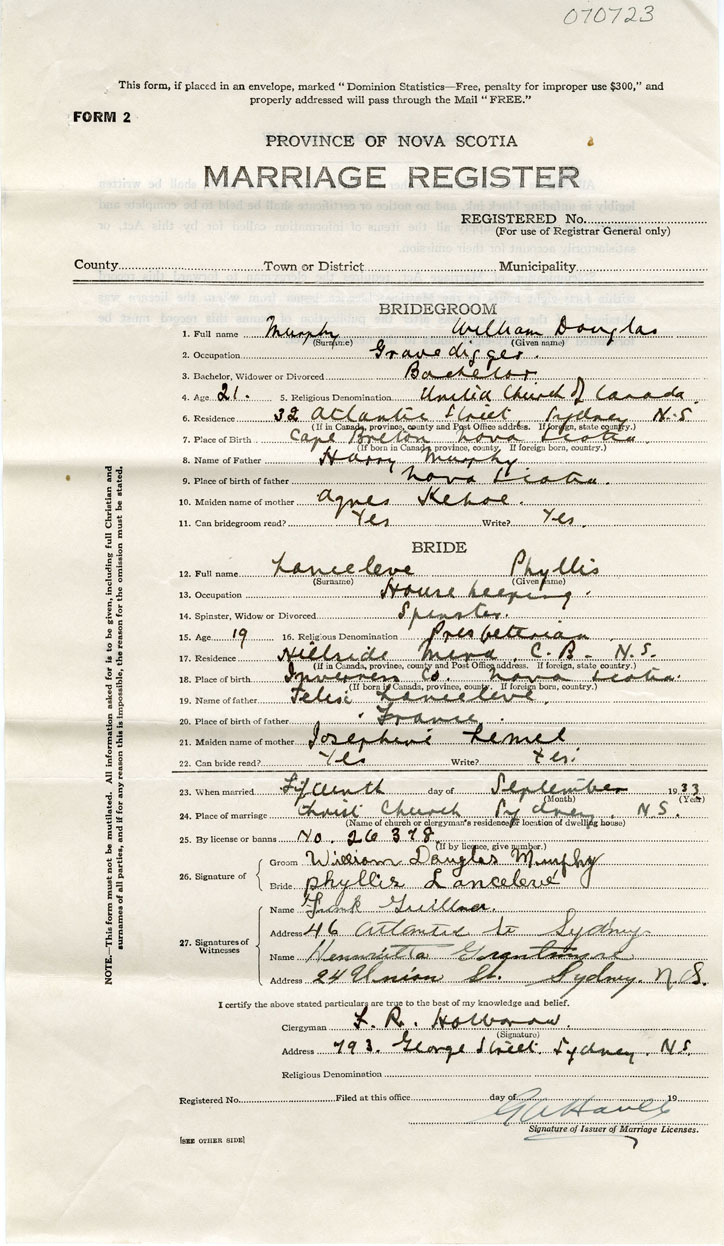 070723
This form, if placed in an envelope, marked "Dominion Statistics—Free, penalty for improper use $300," and
properly addressed will pass through the Mail "FREE."
FORM 2
PROVINCE OF NOVA SCOTIA
MARRIAGE REGISTER
REGISTERED No.
(For use of Registrar General only)
County Town or District Municipality
BRIDEGROOM
1. Full name Murphy William Douglas
(Surname) (Given name)
2. Occupation Gravedigger.
3. Bachelor, Widower or Divorced Bachelor
4. Age 21. 5. Religious Denomination United Church of Canada
6. Residence 32 Atlantic Street Sydney N.S
(If in Canada, province, county and Post Office address. If foreign, state country.)
7. Place of Birth Cape Breton Nova Scotia
(If born in Canada, province, county. If foreign born, country.)
8. Name of Father Harry Murphy
9. Place of birth of father Nova Scotia.
10. Maiden name of mother Agnes Kehoe.
11. Can bridegroom read? Yes Write? Yes.
BRIDE
12. Full name Lanceleve Phyllis
(Surname) (Given name)
13. Occupation House keeping.
14. Spinster, Widow or Divorced Spinster.
15. Age 19 16. Religious Denomination Presbeterian
17. Residence Hillside Mira, C.B. N.S.
(If in Canada, province, county and Post Office address. If foreign, state country.)
18. Place of birth Inverness Co. Nova Scotia.
(If born in Canada, province, county. If foreign born, country.)
19. Name of father Lanceleve.
20. Place of birth of father France.
21. Maiden name of mother Josephine
22. Can bride read? Yes Write? Yes.
23. When married Fifteenth day of September 1933
(Month) (Year)
24. Place of marriage Christ Church Sydney, N.S.
(Name of church or clergyman's residence or location of dwelling house)
25. By license or banns No. 26378
(If by licence, give number.)
26. Signature of
Groom William Douglas Murphy
Bride Phyllis Lancelevé
27. Signatures of Witnesses
Name Frank
Address 46 Atlantic St Sydney.
Name Hennrietta
Address 24 Union St. Sydney. N.S.
I certify the above stated particulars are true to the best of my knowledge and belief.
Clergyman F. R.
(Signature)
Address 793. George Street. Sydney. N.S.
Religious Denomination
Registered No. Filed at this office day of 19
Signature of Issuer of Marriage Licenses.
[SEE OTHER SIDE]
NOTE.—This form must not be mutilated. All information asked for is to be given, including full Christian and
surnames of all parties, and if for any reason this is impossible, the reason for the omission must be stated.